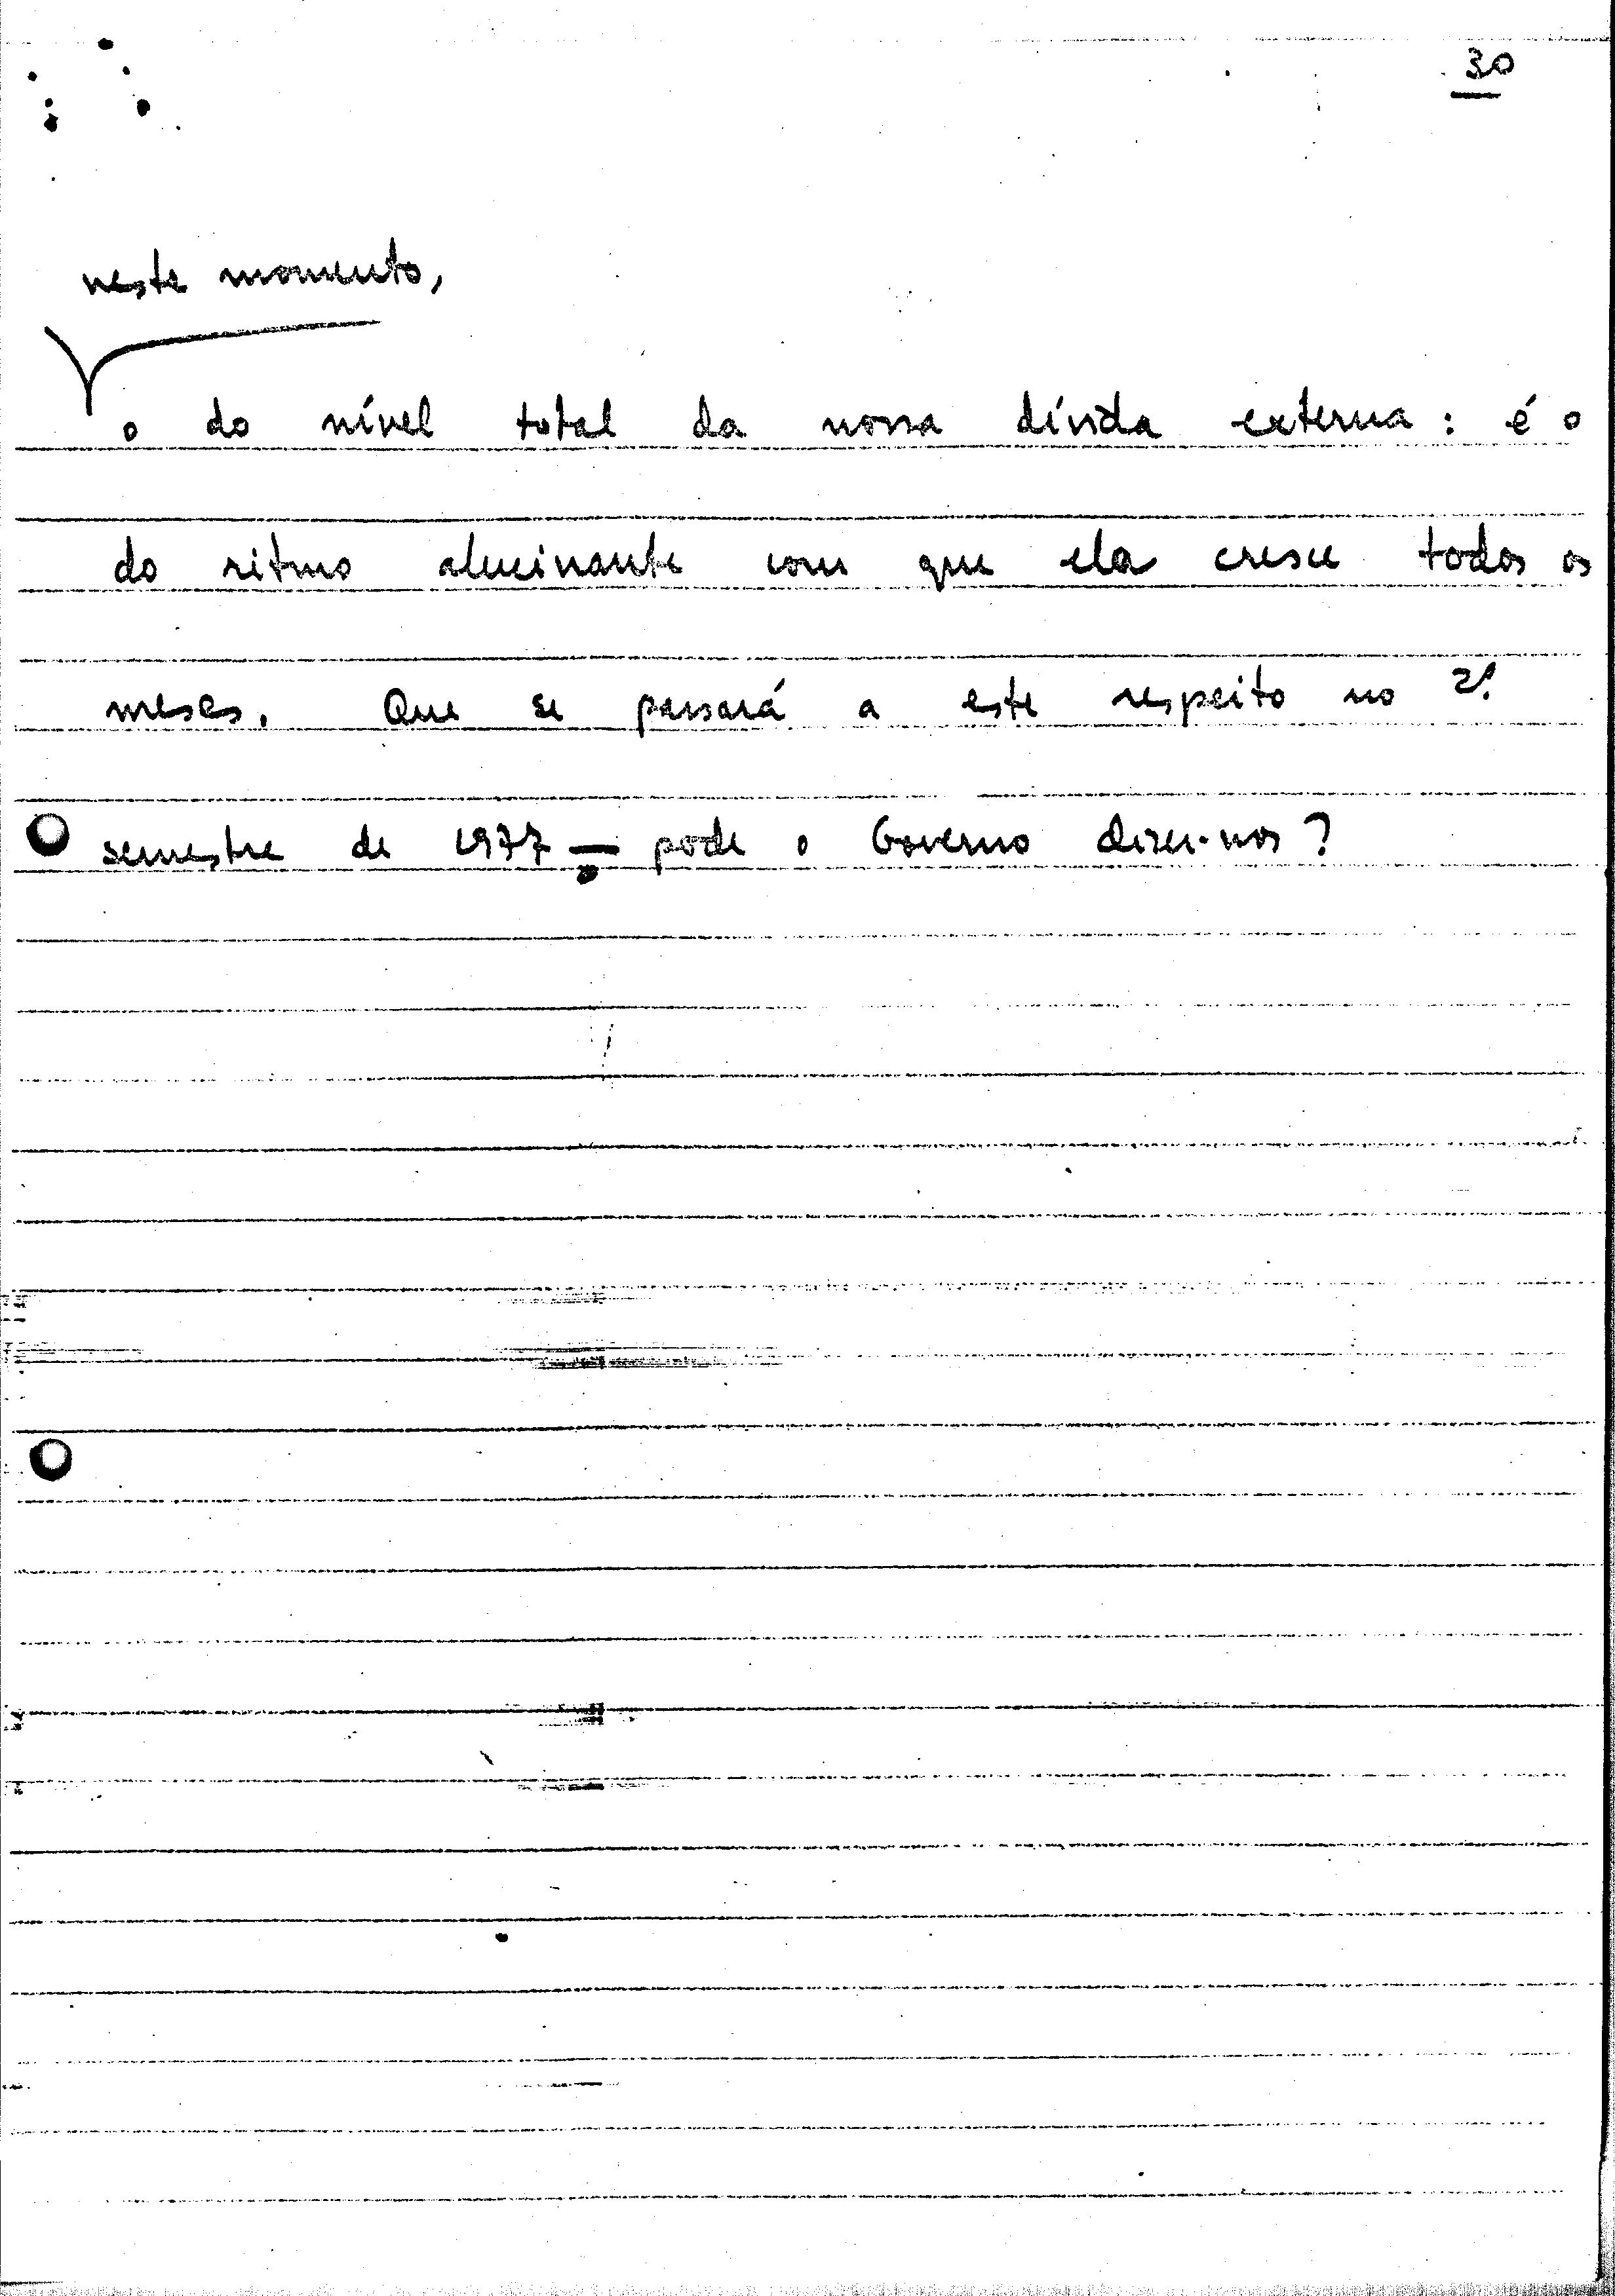 30
neste momento,
o do nível total da nossa dívida externa: é o
do ritmo alucinante com que ela cresce todos os
meses. Que se passará a este respeito no 2º
semestre de 1977 — pode o Governo dizer-nos?